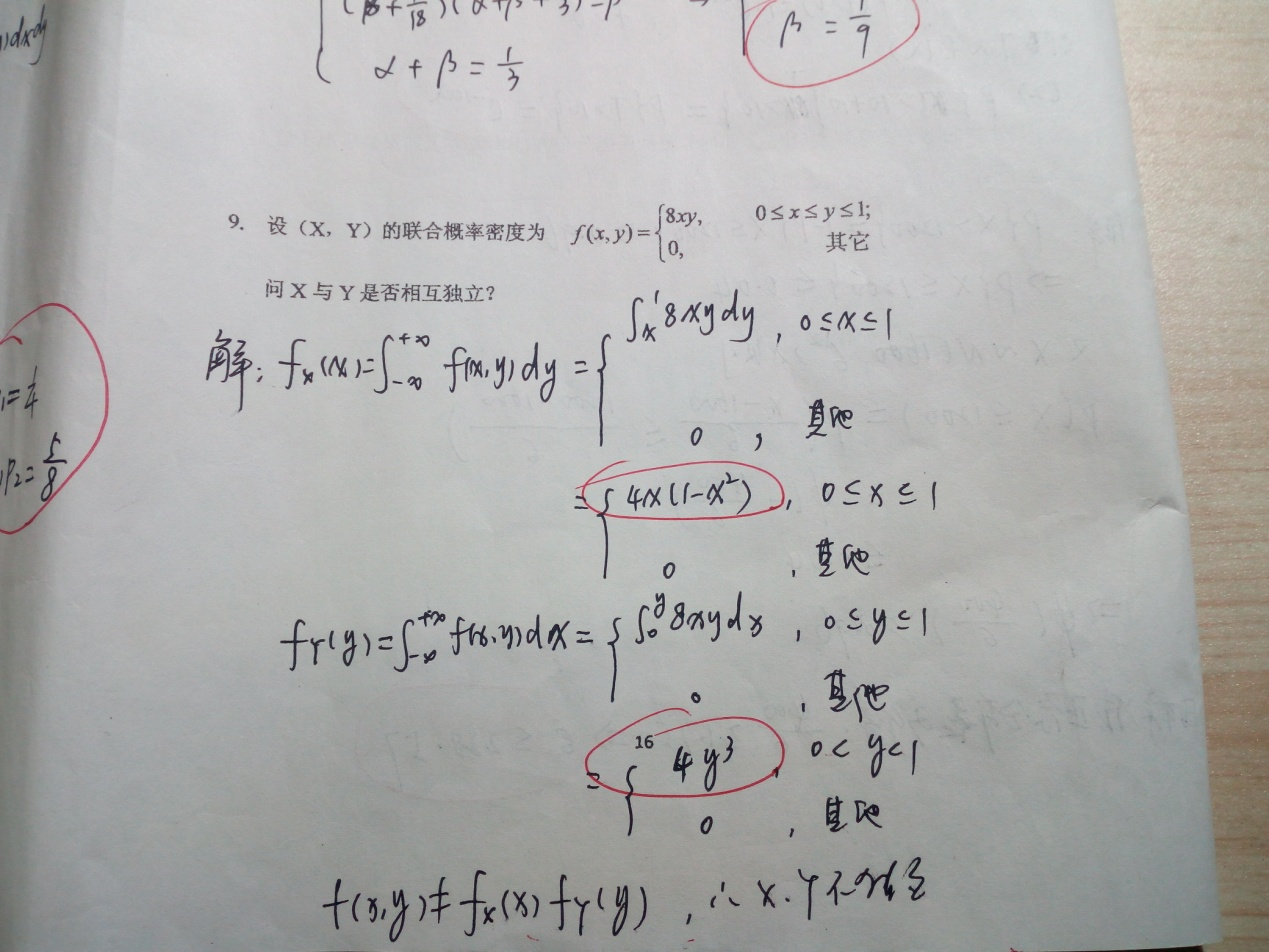 )dxdy
(β + 1/18)(α+β+1/3)=β
α + β = 1/3
β = 1/9
9. 设（X，Y）的联合概率密度为 f(x,y)={8xy, 0≤x≤y≤1;
0, 其它
问 X 与 Y 是否相互独立?
解: fx(x)=∫_{-∞}^{+∞} f(x,y)dy = { ∫_x^1 8xydy , 0≤x≤1
0 , 其他
= { 4x(1-x²) , 0≤x≤1
0 , 其他
fY(y)=∫_{-∞}^{+∞} f(x,y)dx = { ∫_0^y 8xydx , 0≤y≤1
0 , 其他
16
= { 4y³ , 0<y<1
0 , 其他
f(x,y)≠fx(x)fY(y) , ∴ X.Y不独立
1=1/4
P2=5/8